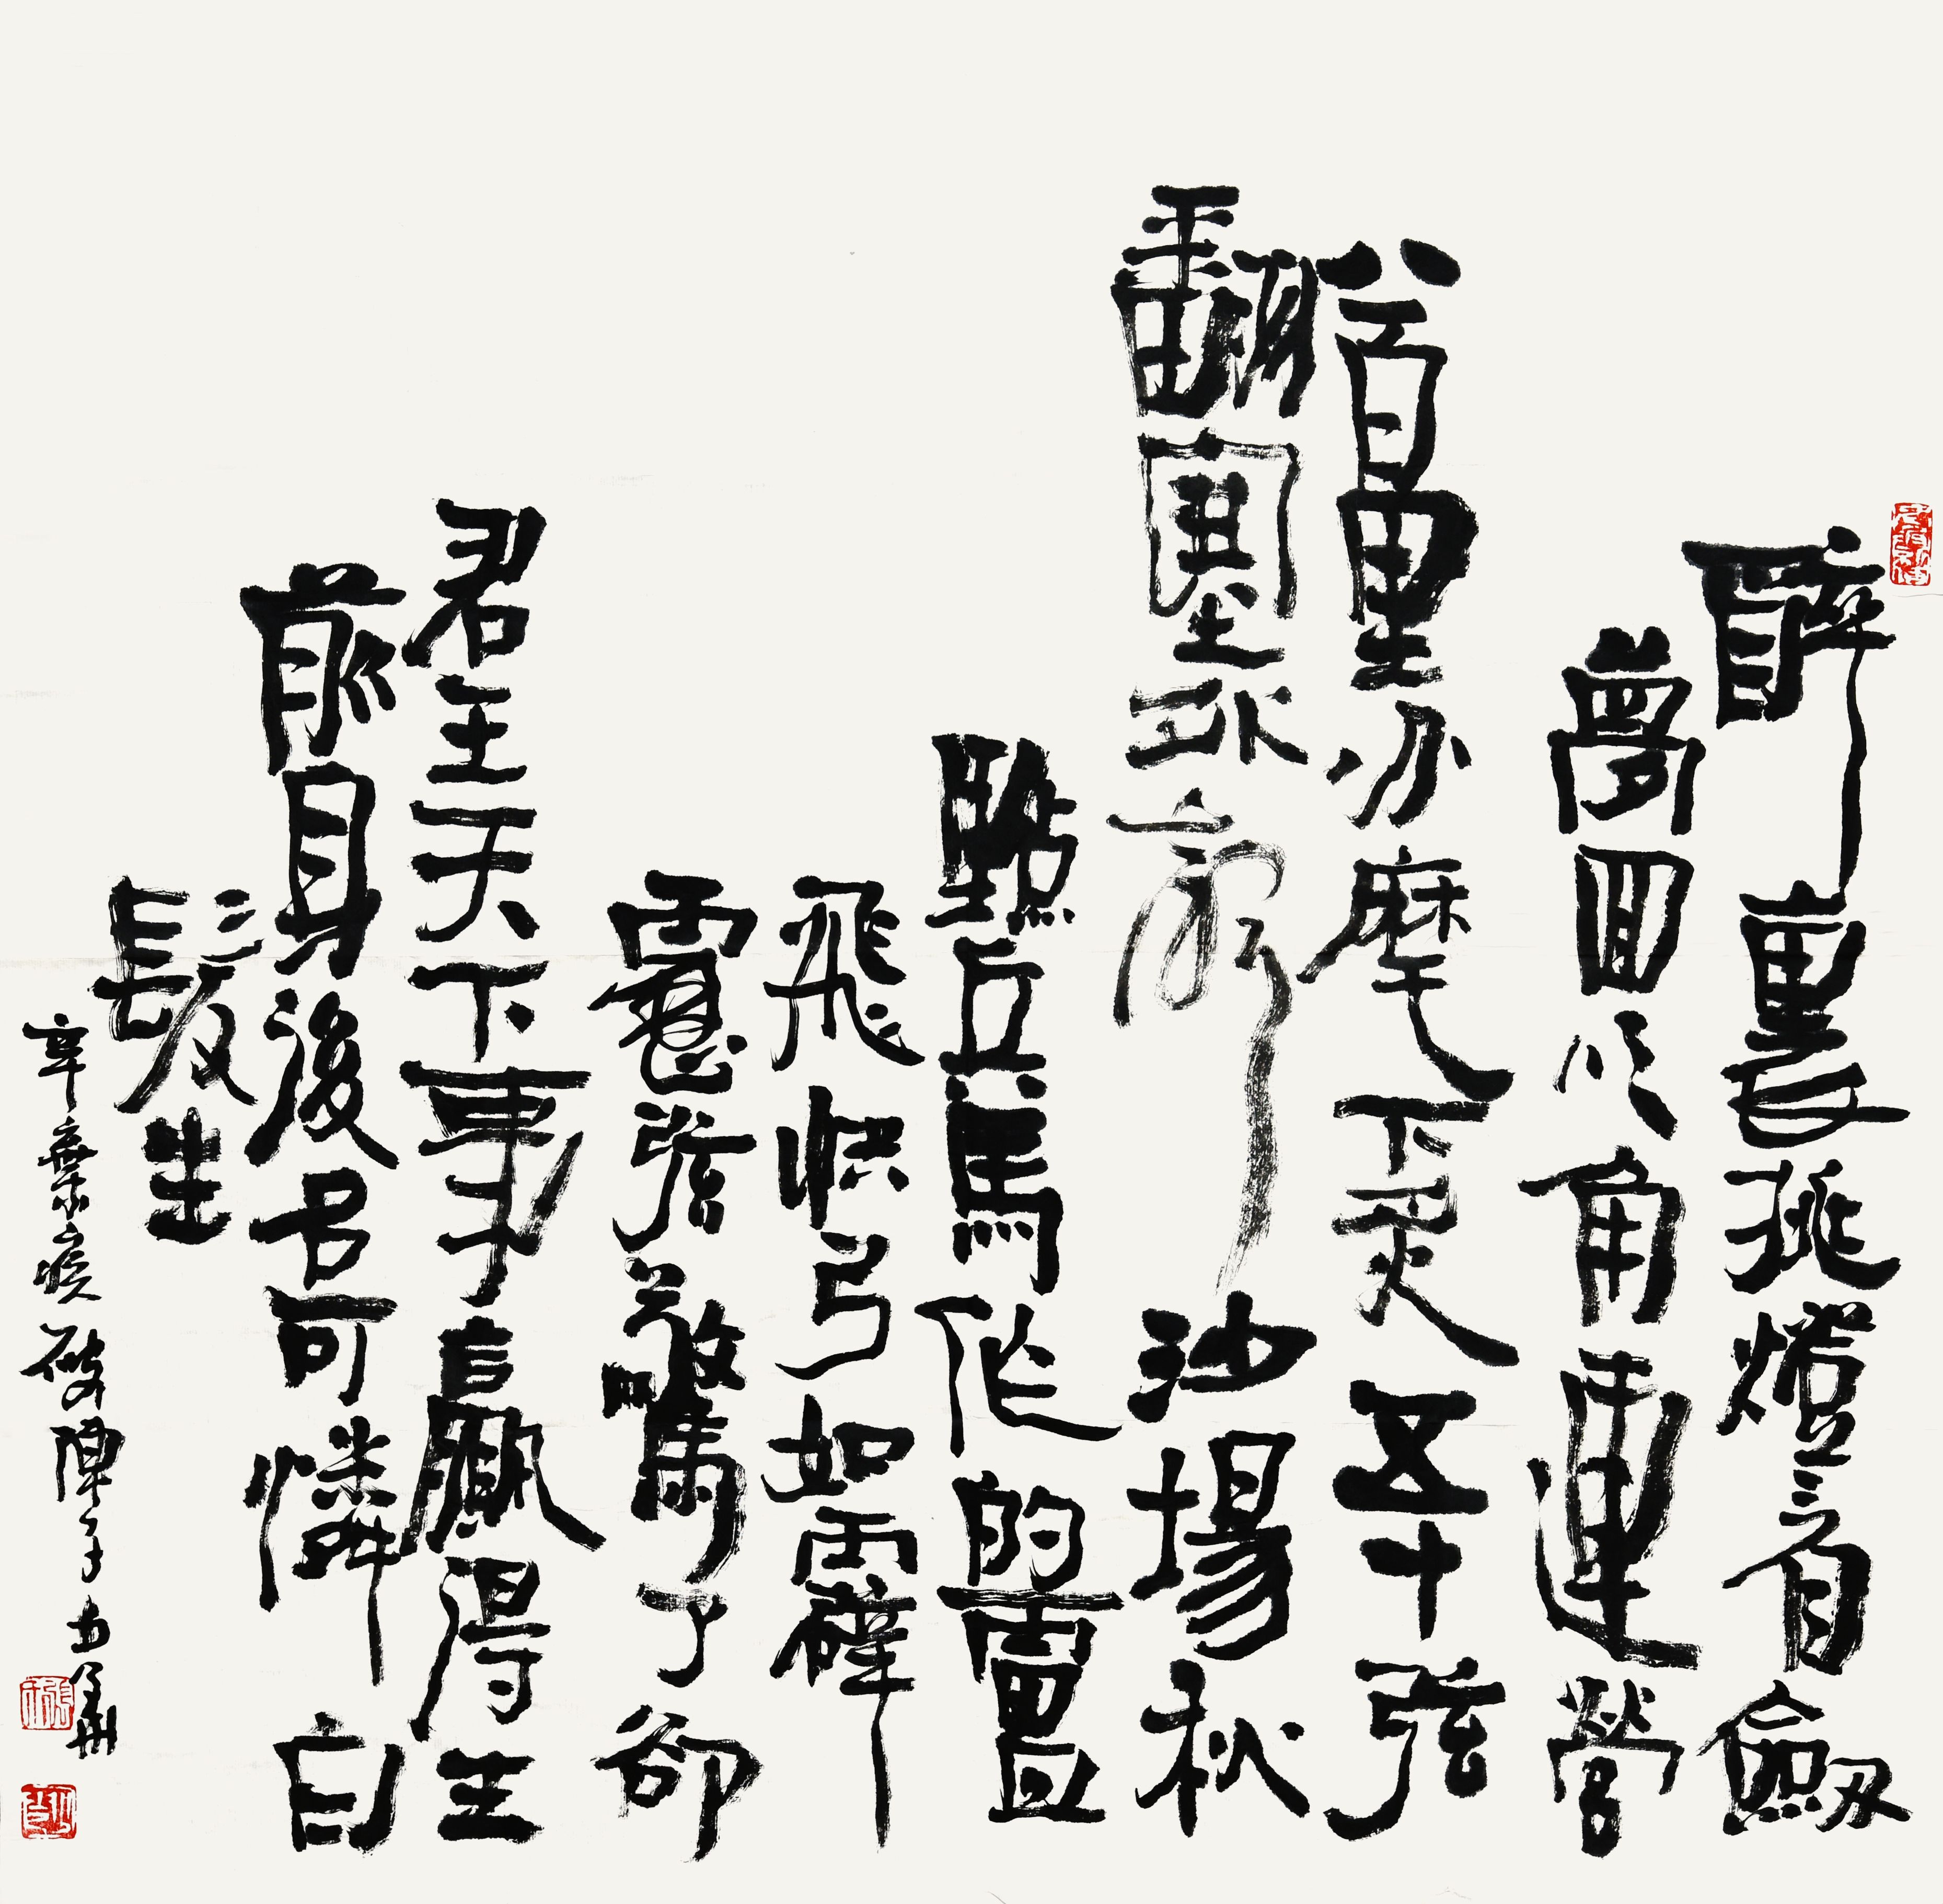 醉裏挑燈看劍
夢回吹角連營
八百里分麾下炙五十弦
翻塞外聲沙場秋
點兵馬作的盧
飛快弓如霹
靂弦驚了卻
君王天下事贏得生
前身後名可憐白
髮生
辛棄疾破陣子